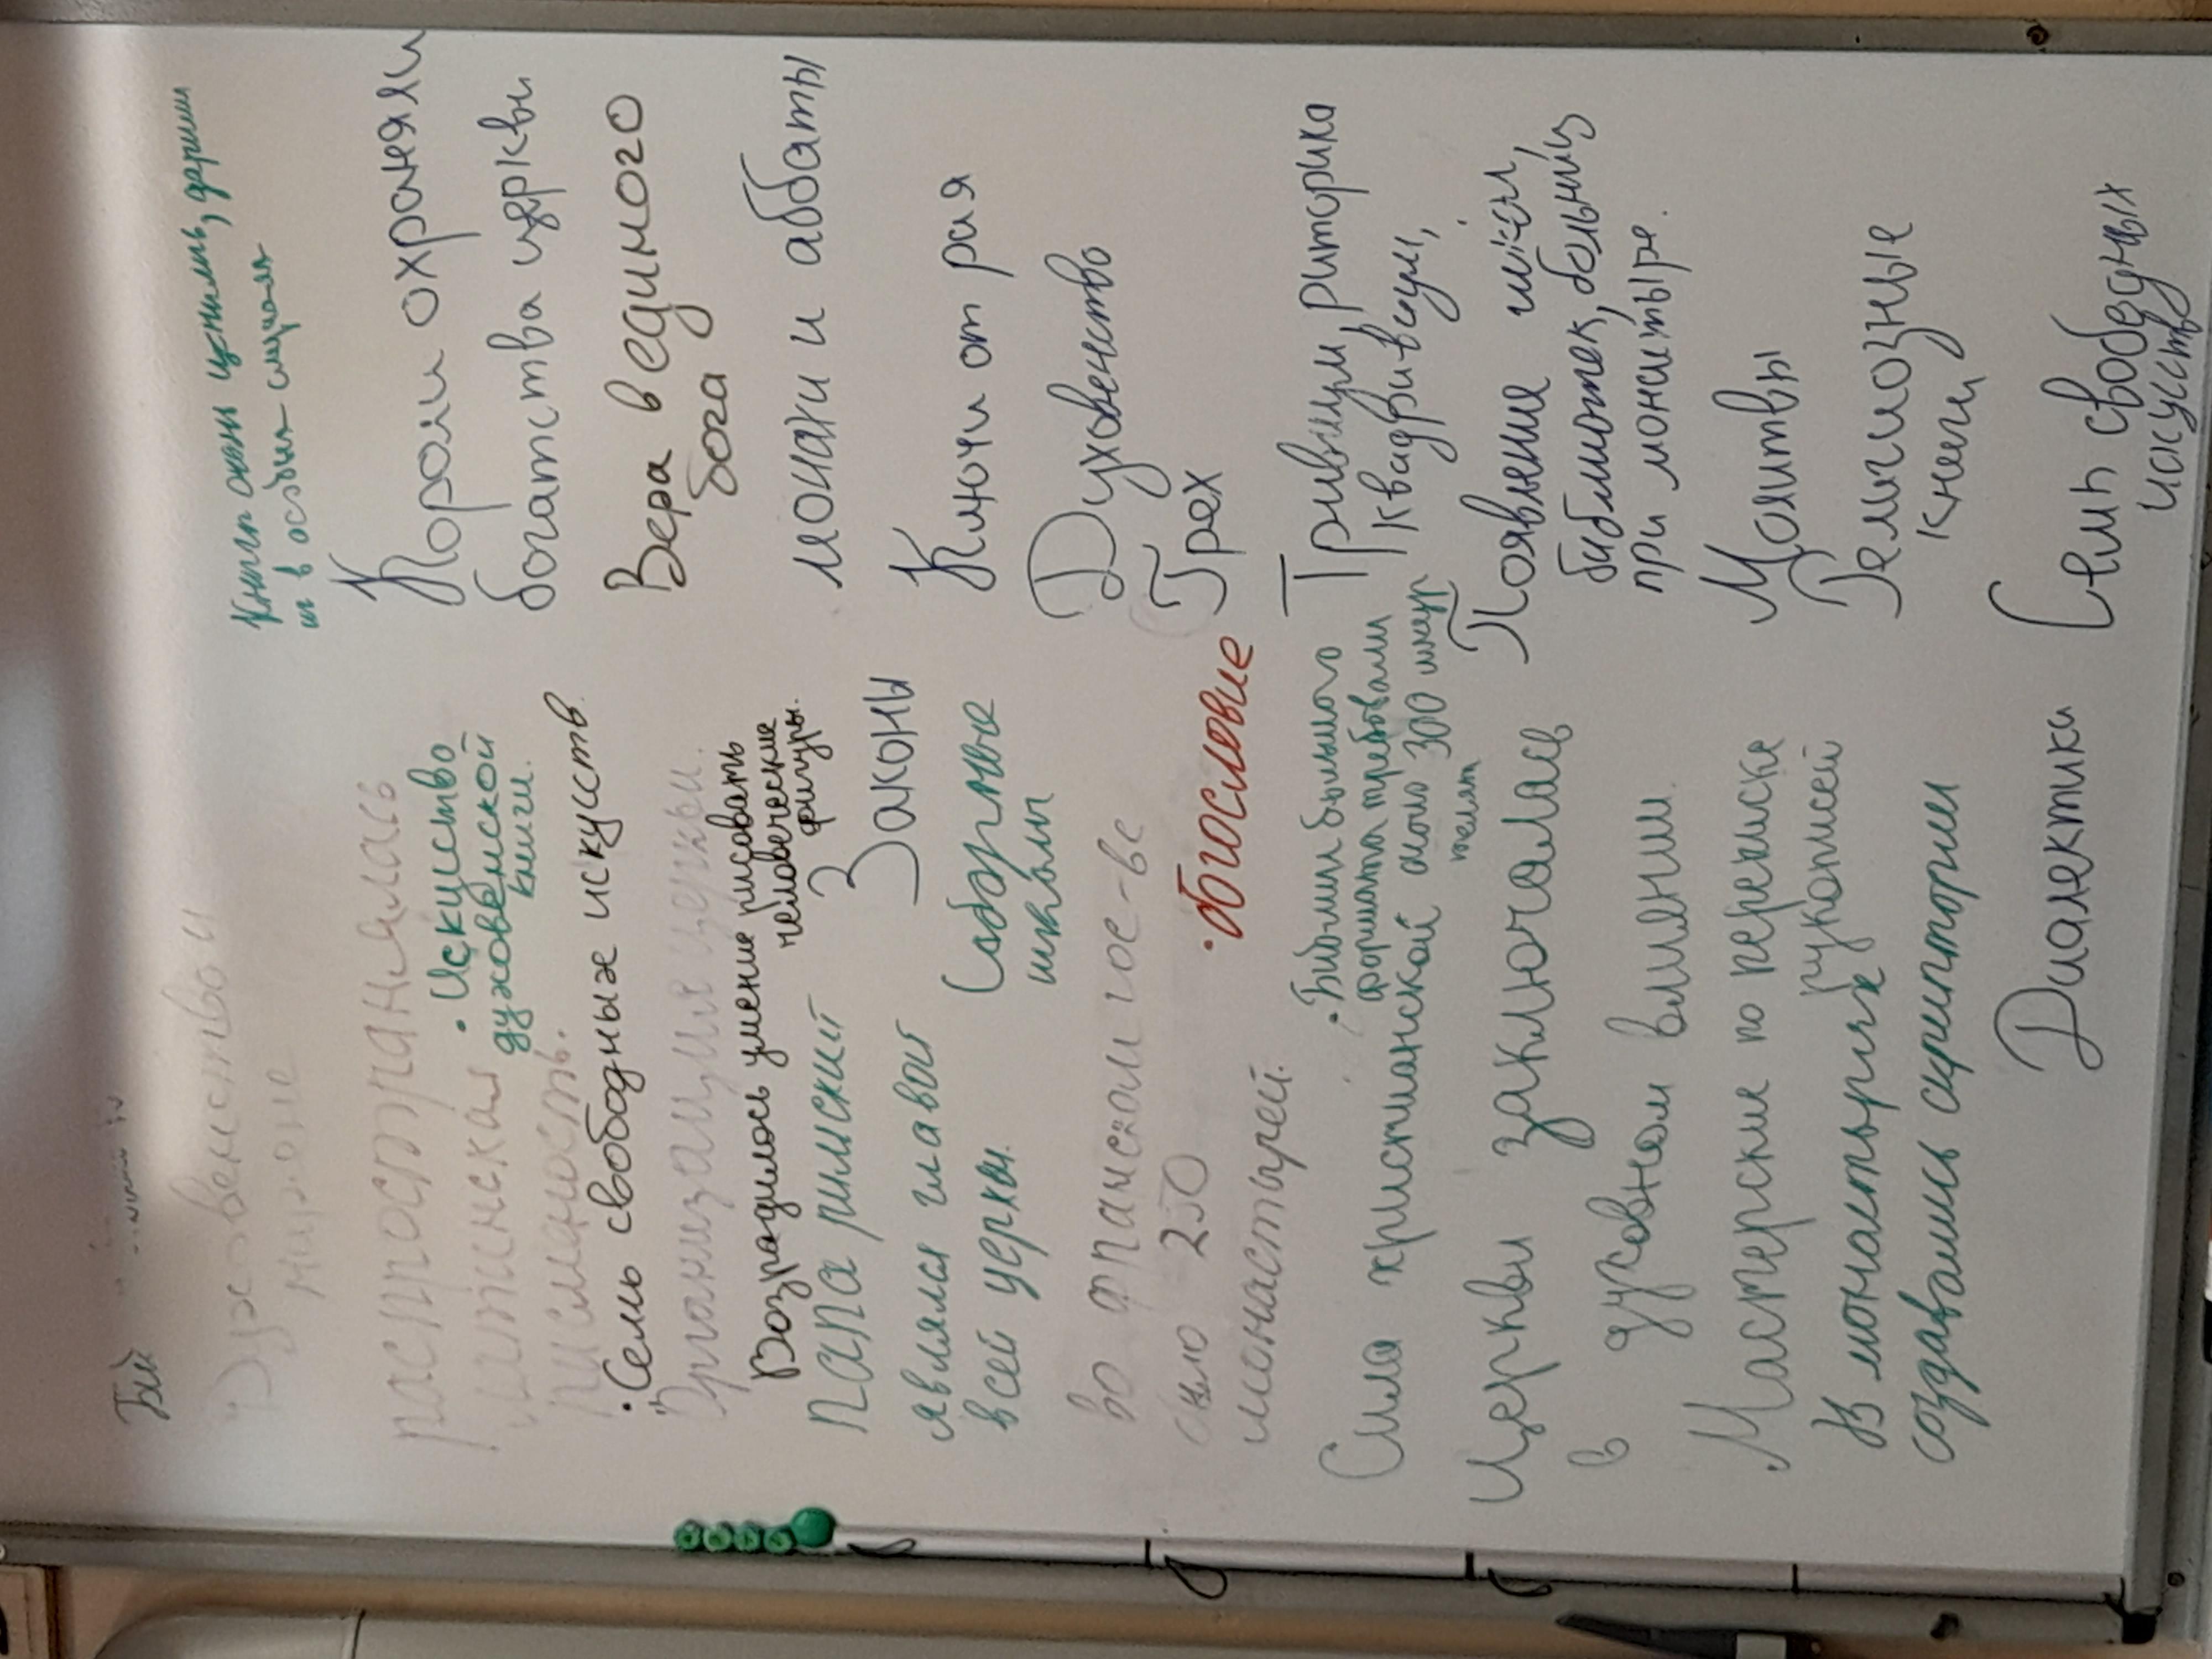 Духовенство и
миряне
распространялась
латинская
письменность.
• Искусство
духовенской
книги.
• Семь свободных искусств.
Организация церкви.
Возрадилось умение рисовать
человеческие
фигуры.
Папа римский
являлся главой
всей церкви.
Законы
Соборные
школы
во франском гос-ве
было 250
монастырей.
• богословие
• Библии большого
формата требовали
около 300 шкур
телят
Сила христианской
Церкви заключалась
в духовном влиянии.
Мастерские по переписке
рукописей
В монастырях
создавались скриптории
Диалектика
Книги очень ценились, дарили
их в особых случаях
Короли охраняли
богатства церкви
Вера в единого
бога
монахи и аббаты
Ключи от рая
Духовенство
Грех
Тривиум, риторика
квадривиум,
Появление школ,
библиотек, больниц
при монастыре.
Молитвы
Религиозные
книги
Семь свободных
искусств